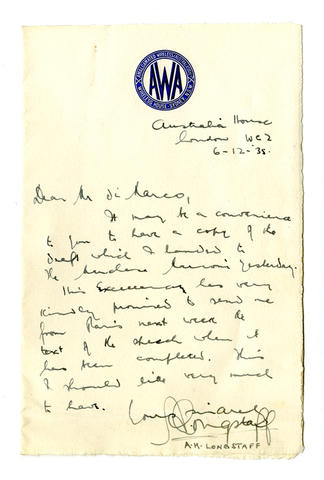 AMALGAMATED WIRELESS (AUSTRALASIA) LTD
AWA
WIRELESS HOUSE, SYDNEY, N.S.W.
Australia House
London WC2
6-12-35.
Dear Mr di Marco,
It may be a convenience
to you to have a copy of the
draft which I handed to
the Marchese Marconi yesterday.
His Excellency has very
kindly promised to send me
from Paris next week the
text of the speech when it
has been completed. This
I should like very much
to have.
Yours sincerely
A.K. Longstaff
A.K. LONGSTAFF